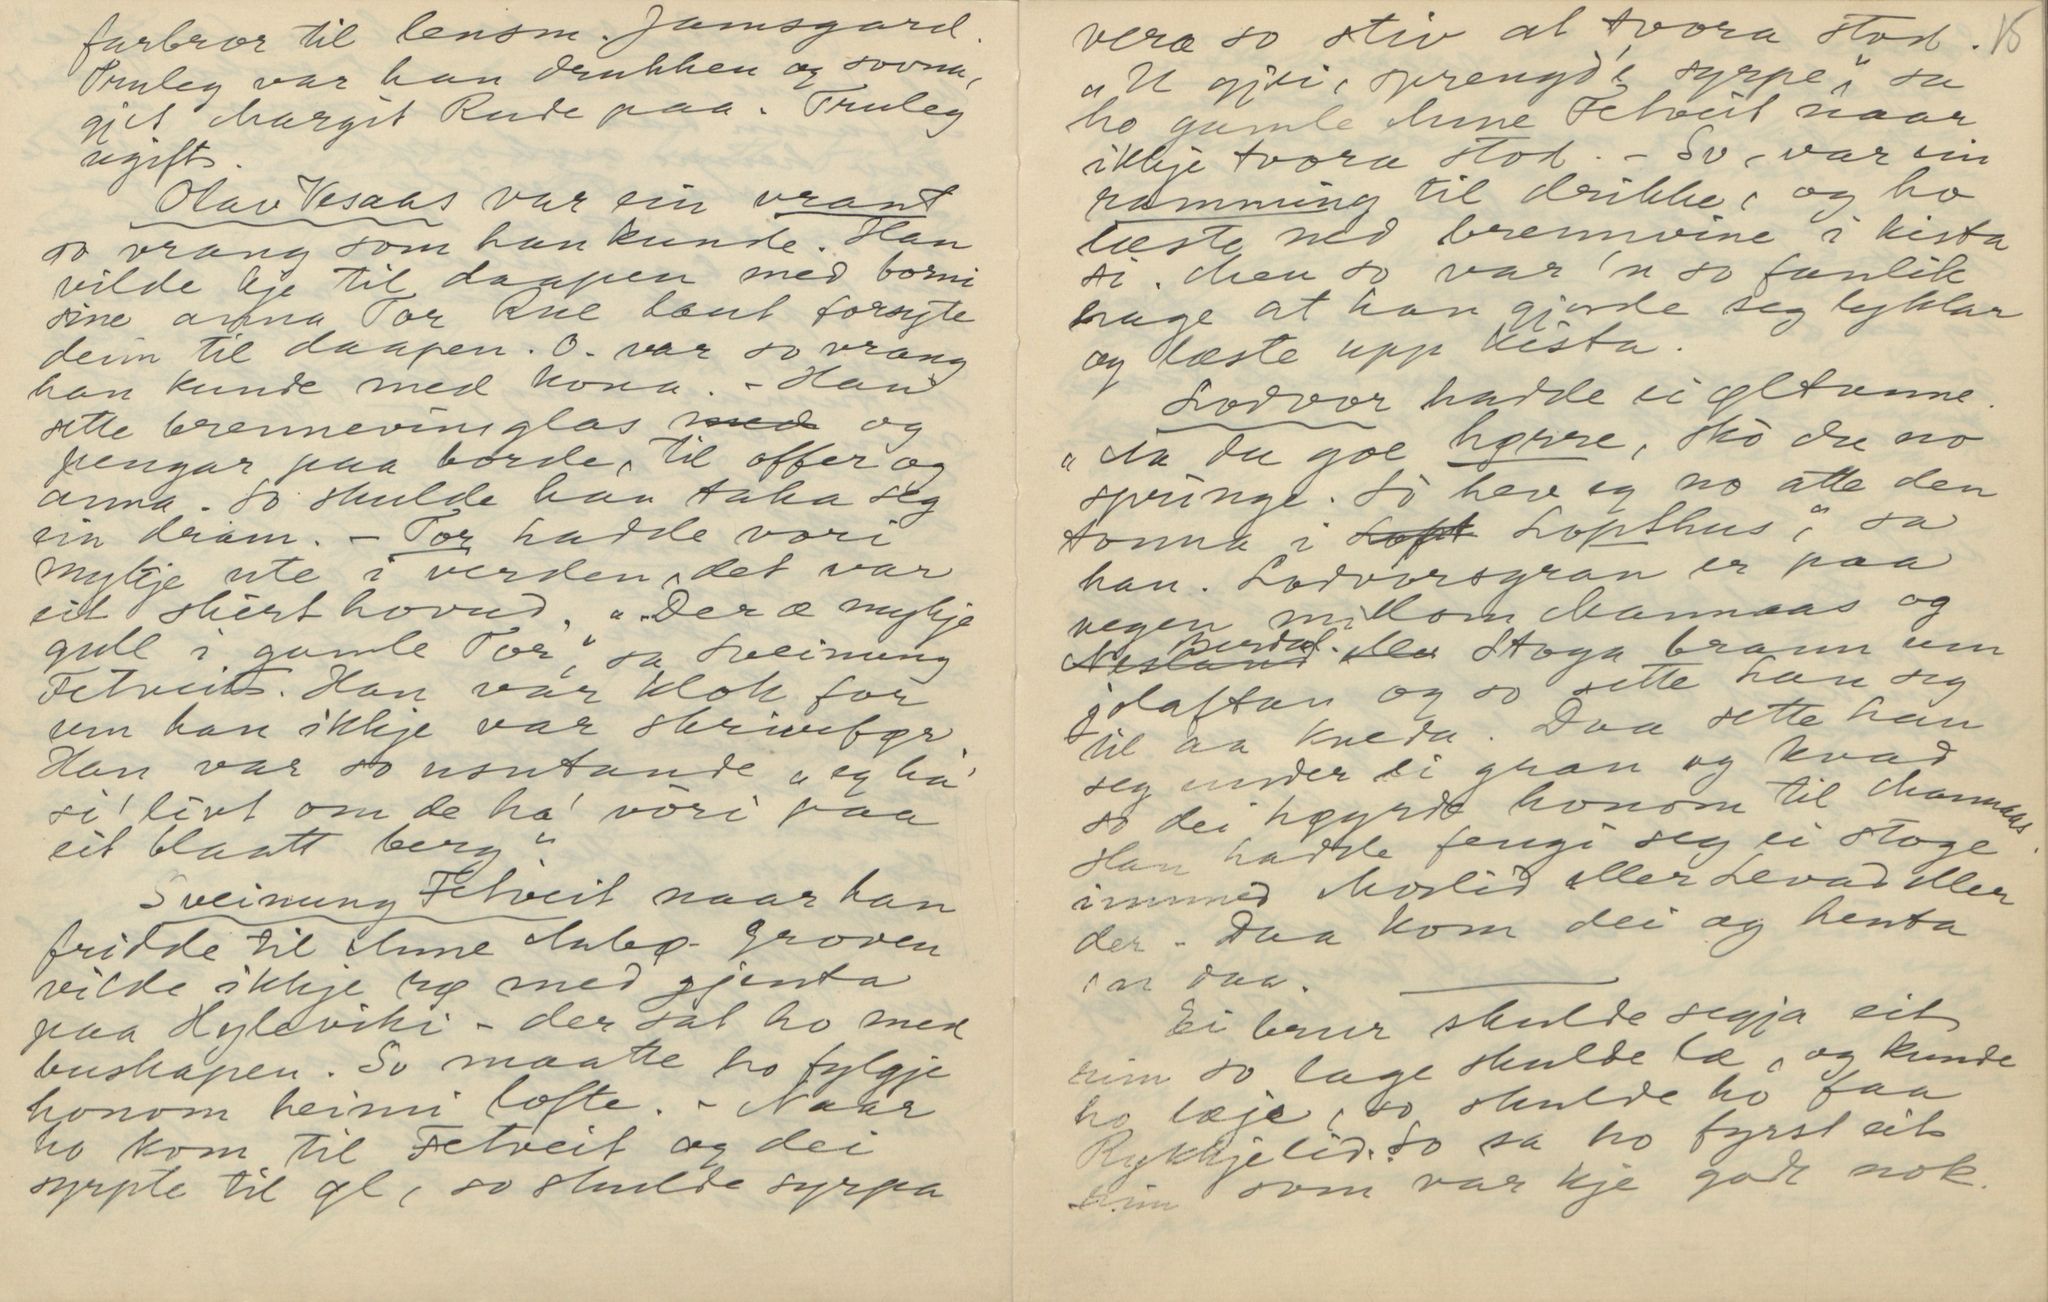 farbror til lensm. Jamsgard.
Truleg var han drukken og sovna,
gjet Margit Rude paa. Truleg
ugift.
Olav Vesaas var ein vrant
so vrang som han kunde. Han
vilde kje til daapen med borni
sine anna Tor Rue laut forsyte
deim til daapen. O. var so vrang
han kunde med kona. - Han
sette brennevinsglas med og
pengar paa borde, til offer og
anna. So skulde han taka seg
ein dram. - Tor hadde vori
mykje ute i verden, det var
eit skiert hovud. "Der æ mykje
gull i gamle Tor", sa Sveinung
Fetveit. Han var klok for
um han ikkje var skrivefør.
Han var so usutande "eg ha'
si' livt om de ha' vôri paa
eit blaatt berg"
Sveinung Fetveit naar han
fridde til Anne Aabø - Groven
vilde ikkje rø med gjenta
paa Hyleviki - der sat ho med
buskapen. So maatte ho fylgje
honom heim i lofte. - Naar
ho kom til Fetveit og dei
syrpte til øl, so skulde syrpa
vera so stiv at tvora stod. 15
"U gjei, sprengd'e syrpe", sa
ho gamle Anne Fetveit naar
ikkje tvora stod. - So, var ein
ramming til drikke, og ho
læste ned brennvine i kista
si. Men so var 'n so fanlik
hage at han gjorde seg lyklar
og læste upp kista.
Lodvor hadde ei øltunne.
"Aa du goe hørre, skò du no
springe. Sò hev eg no atte den
tonna i Loft Lopthus", sa
han. Lodvorsgran er paa
vegen millom Mannaas og
Nesland Burdal. Stoga brann um
jolaftan og so sette han seg
til aa kveda. Daa sette han
seg under ei gran og kvad
so dei høyrde honom til Mannaas.
Han hadde fengi seg ei stoge
immed Moslid eller Levad eller
der. Daa kom dei og henta
'n daa.
Ei brur skulde segja eit
rim so lage skulde læ, og kunde
ho læje, so skulde ho faa
Rykkjelid. So sa ho fyrst eit
rim som var kje godt nok.